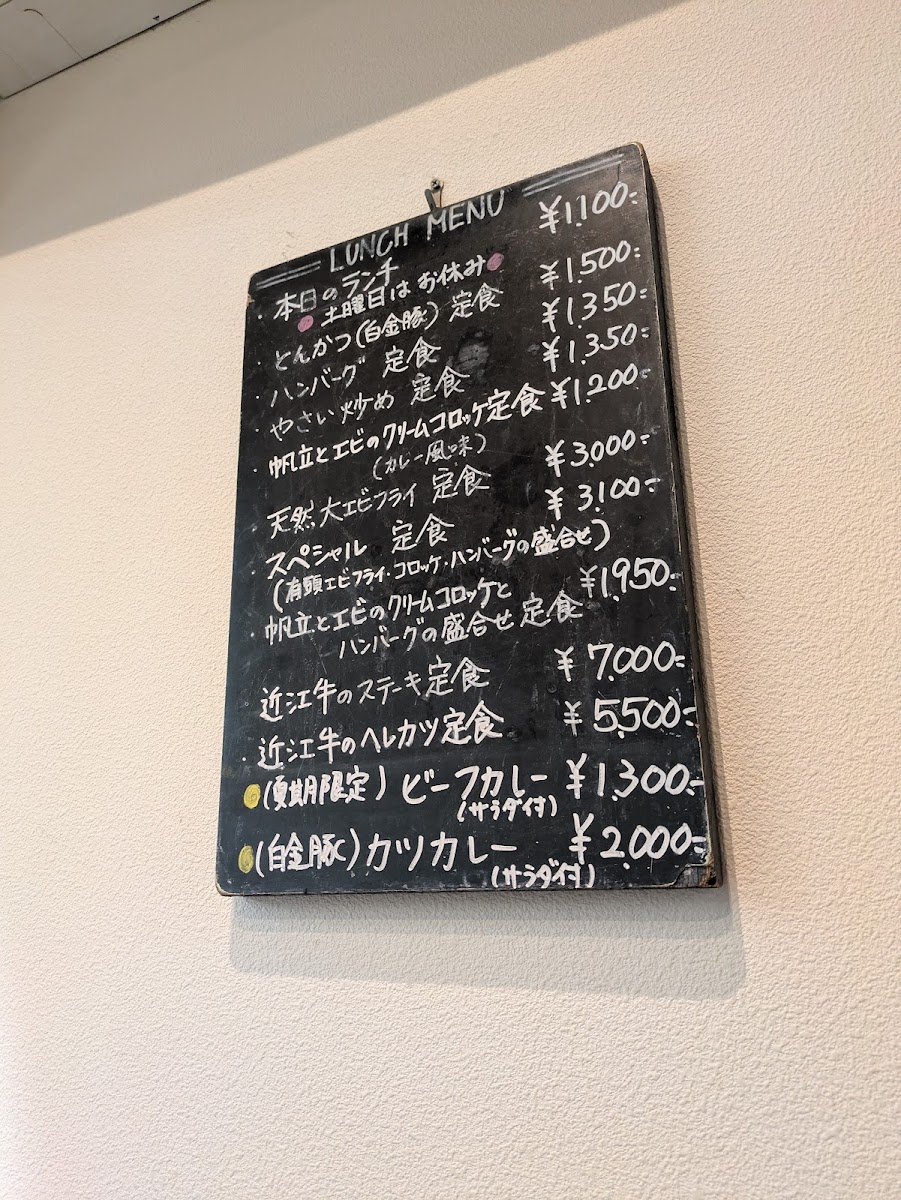 LUNCH MENU
・本日のランチ ¥1.100-
土曜日は お休み
・とんかつ(白金豚) 定食 ¥1.500-
・ハンバーグ 定食 ¥1.350-
・やさい炒め 定食 ¥1.350-
・帆立とエビのクリームコロッケ定食 ¥1.200-
(カレー風味)
・天然大エビフライ 定食 ¥3.000-
・スペシャル 定食 ¥3.100-
(有頭エビフライ・コロッケ・ハンバーグの盛合せ)
・帆立とエビのクリームコロッケと
ハンバーグの盛合せ 定食 ¥1.950-
・近江牛のステーキ定食 ¥7.000-
・近江牛のヘレカツ定食 ¥5.500-
(夏期限定) ビーフカレー ¥1.300-
(サラダ付)
(白金豚) カツカレー ¥2.000-
(サラダ付)